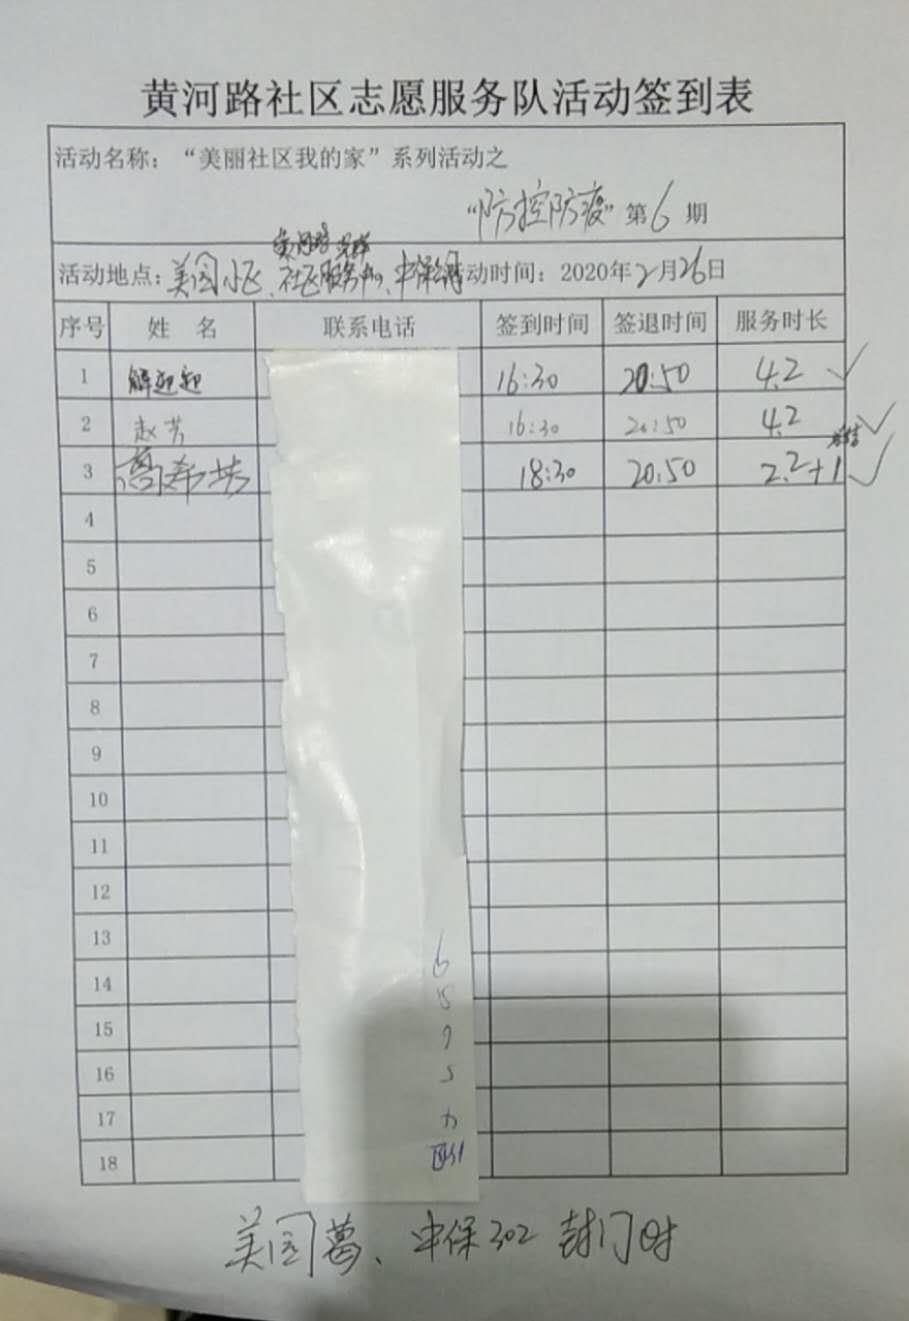 黄河路社区志愿服务队活动签到表
活动名称：“美丽社区我的家”系列活动之
“防控防疫”第6期
活动地点：美国小区、社区服务中心、中保 活动时间：2020年2月26日
序号 姓名 联系电话 签到时间 签退时间 服务时长
1 解迎迎 16:30 20:50 4.2
2 赵芳 16:30 20:50 4.2
3 葛希芳 18:30 20:50 2.2+1
4
5
6
7
8
9
10
11
12
13
14
15
16
17
18
中保302 封门